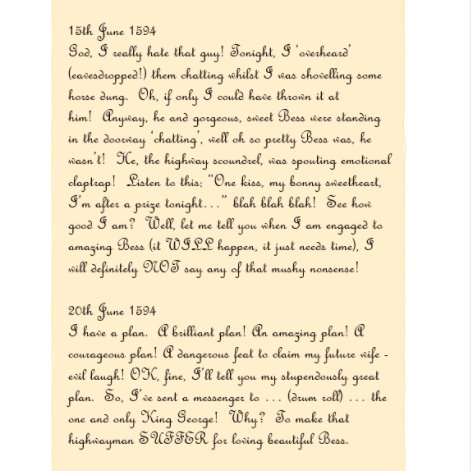 15th June 1594
God, I really hate that guy! Tonight, I ‘overheard’
(eavesdropped!) them chatting whilst I was shovelling some
horse dung.  Oh, if only I could have thrown it at
him!  Anyway, he and gorgeous, sweet Bess were standing
in the doorway ‘chatting’, well oh so pretty Bess was, he
wasn’t!  He, the highway scoundrel, was spouting emotional
claptrap!  Listen to this: “One kiss, my bonny sweetheart,
I’m after a prize tonight…” blah blah blah!  See how
good I am?  Well, let me tell you when I am engaged to
amazing Bess (it WILL happen, it just needs time), I
will definitely NOT say any of that mushy nonsense!

20th June 1594
I have a plan.  A brilliant plan! An amazing plan! A
courageous plan! A dangerous feat to claim my future wife -
evil laugh! OK, fine, I’ll tell you my stupendously great
plan.  So, I’ve sent a messenger to … (drum roll) … the
one and only King George!  Why?  To make that
highwayman SUFFER for loving beautiful Bess.